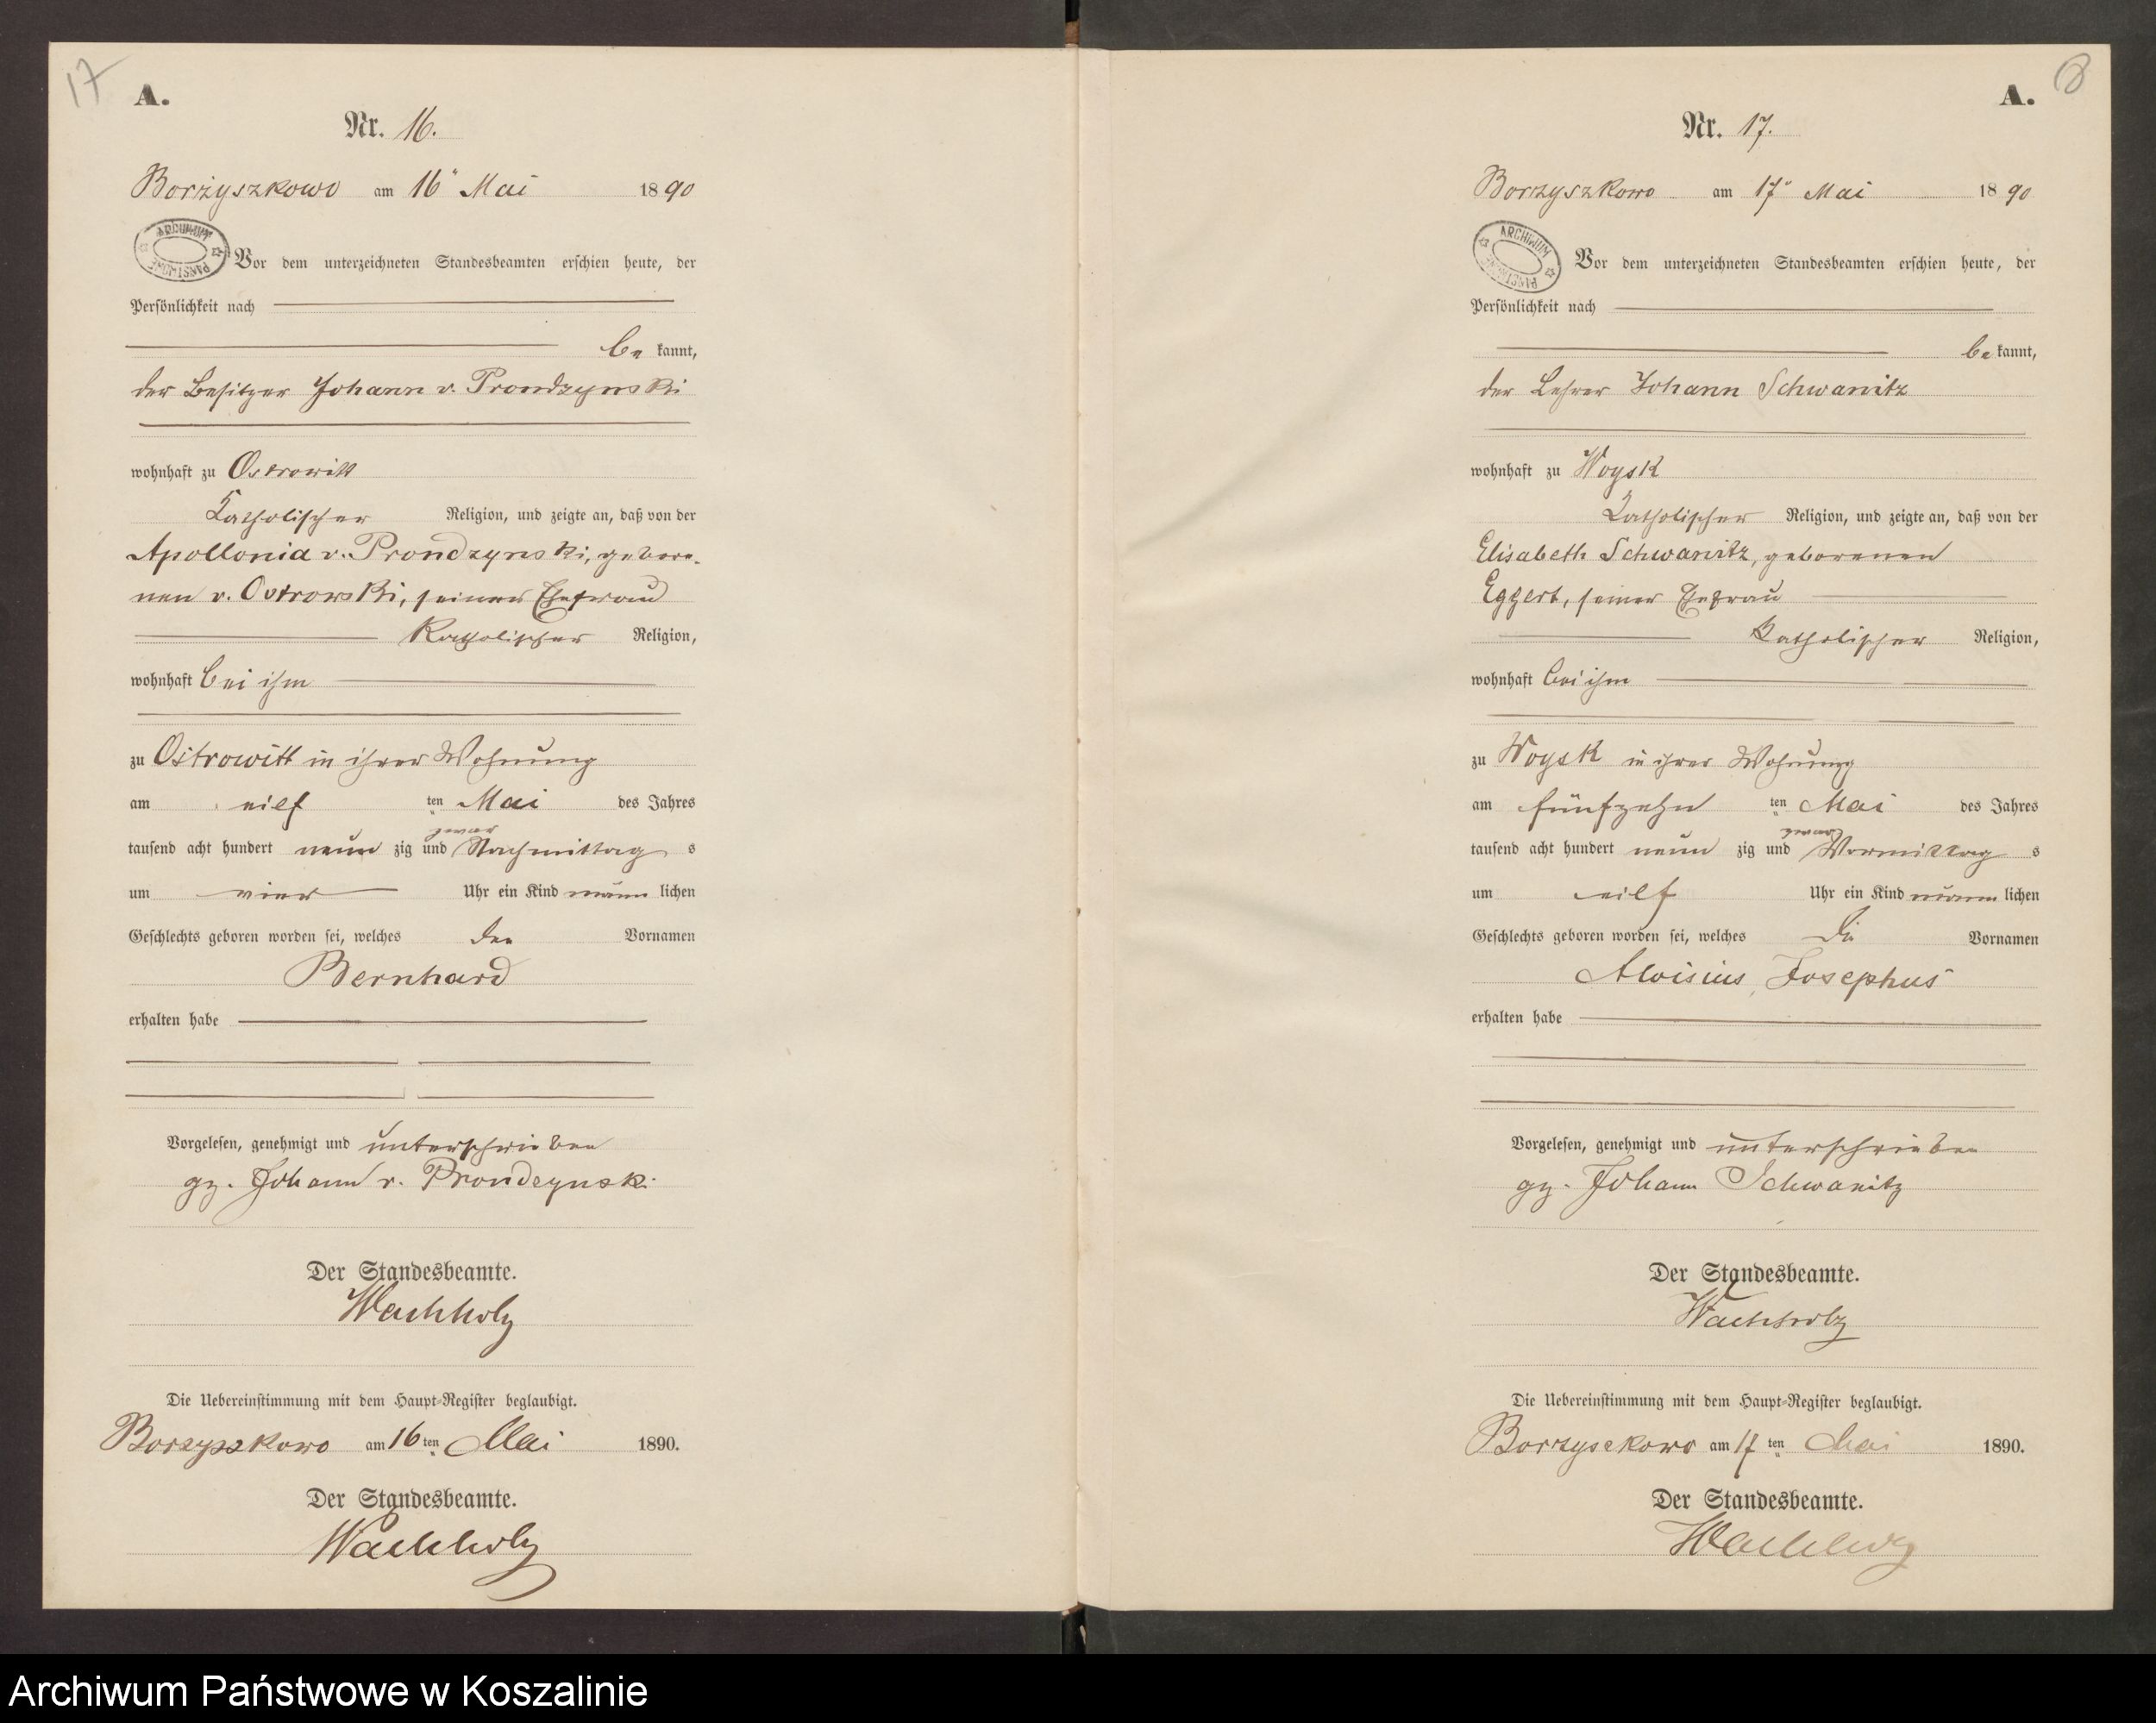 17
A.
Nr. 16.
Borzyszkowo am 16" Mai 1890
ARCHIWUM PAŃSTWOWE
Vor dem unterzeichneten Standesbeamten erschien heute, der
Persönlichkeit nach
be kannt,
der Besitzer Johann v. Prondzynski
wohnhaft zu Ostrowitt
Katholischer Religion, und zeigte an, daß von der
Apollonia v. Prondzynski, gebore-
nen v. Ostrowski, seiner Ehefrau
Katholischer Religion,
wohnhaft bei ihm
zu Ostrowitt in ihrer Wohnung
am eilf ten Mai des Jahres
zwar
tausend acht hundert neun zig und Nachmittag s
um vier Uhr ein Kind männ lichen
Geschlechts geboren worden sei, welches den Vornamen
Bernhard
erhalten habe
Vorgelesen, genehmigt und unterschrieben
gz. Johann v. Prondzynski
Der Standesbeamte.
Wachholz
Die Uebereinstimmung mit dem Haupt-Register beglaubigt.
Borzyszkowo am 16 ten Mai 1890.
Der Standesbeamte.
Wachholz
A.
Nr. 17.
Borzyszkowo am 17" Mai 1890
ARCHIWUM PAŃSTWOWE
Vor dem unterzeichneten Standesbeamten erschien heute, der
Persönlichkeit nach
be kannt,
der Lehrer Johann Schwanitz
wohnhaft zu Woysk
Katholischer Religion, und zeigte an, daß von der
Elisabeth Schwanitz, geborenen
Eggert, seiner Ehefrau
Katholischer Religion,
wohnhaft bei ihm
zu Woysk in ihrer Wohnung
am fünfzehn ten Mai des Jahres
zwar
tausend acht hundert neun zig und Vormittag s
um eilf Uhr ein Kind männ lichen
Geschlechts geboren worden sei, welches die Vornamen
Aloisius, Josephus
erhalten habe
Vorgelesen, genehmigt und unterschrieben
gz. Johann Schwanitz
Der Standesbeamte.
Wachholz
Die Uebereinstimmung mit dem Haupt-Register beglaubigt.
Borzyszkowo am 17 ten Mai 1890.
Der Standesbeamte.
Wachholz
Archiwum Państwowe w Koszalinie